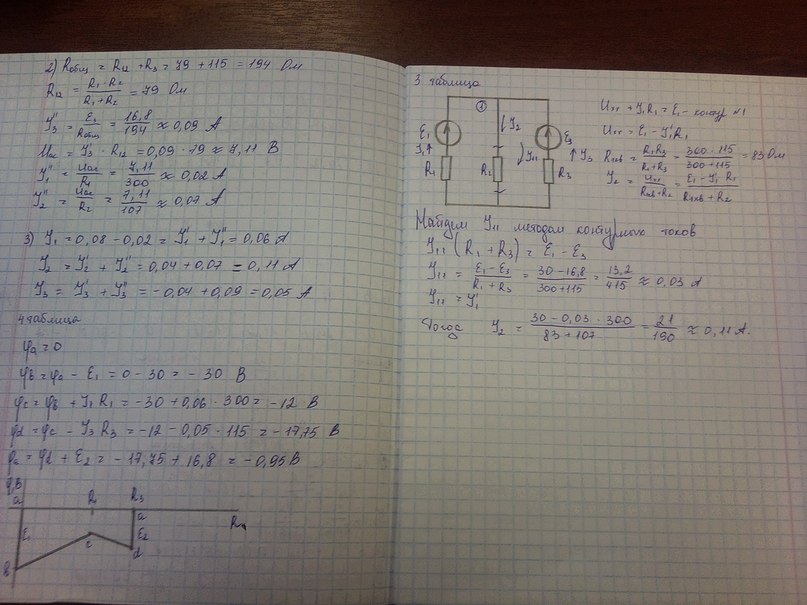 2) Rобщ = R12 + R3 = 79 + 115 = 194 Ом
R12 = R1 · R2 / R1 + R2 = 79 Ом
У3'' = E2 / Rобщ = 16,8 / 194 ≈ 0,09 А
Uac = У3'' · R12 = 0,09 · 79 ≈ 7,11 В
У1'' = Uac / R1 = 7,11 / 300 ≈ 0,02 А
У2'' = Uac / R2 = 7,11 / 107 ≈ 0,07 А
3) У1 = 0,08 - 0,02 = У1' + У1'' = 0,06 А
У2 = У2' + У2'' = 0,04 + 0,07 = 0,11 А
У3 = У3' + У3'' = -0,04 + 0,09 = 0,05 А
4 таблица
φa = 0
φb = φa - E1 = 0 - 30 = -30 В
φc = φb + У1 R1 = -30 + 0,06 · 300 = -12 В
φd = φc - У3 R3 = -12 - 0,05 · 115 = -17,75 В
φa = φd + E2 = -17,75 + 16,8 = -0,95 В
φ,В
a R1 R3
a
E1 c E2
d
b
3 таблица
E1 У2 E3
У1 У11 У3
R1 R2 R3
Uхх + У1R1 = E1 - контур №1
Uхх = E1 - У1'R1
Rэкв = R1R3 / R1 + R3 = 300 · 115 / 300 + 115 = 83 Ом
У2 = Uхх / Rэкв + R2 = E1 - У1 R1 / Rэкв + R2
Найдем У11 методом контурных токов
У11 (R1 + R3) = E1 - E3
У11 = E1 - E3 / R1 + R3 = 30 - 16,8 / 300 + 115 = 13,2 / 415 ≈ 0,03 А
У11 = У1'
Тогда У2 = 30 - 0,03 · 300 / 83 + 107 = 21 / 190 ≈ 0,11 А.